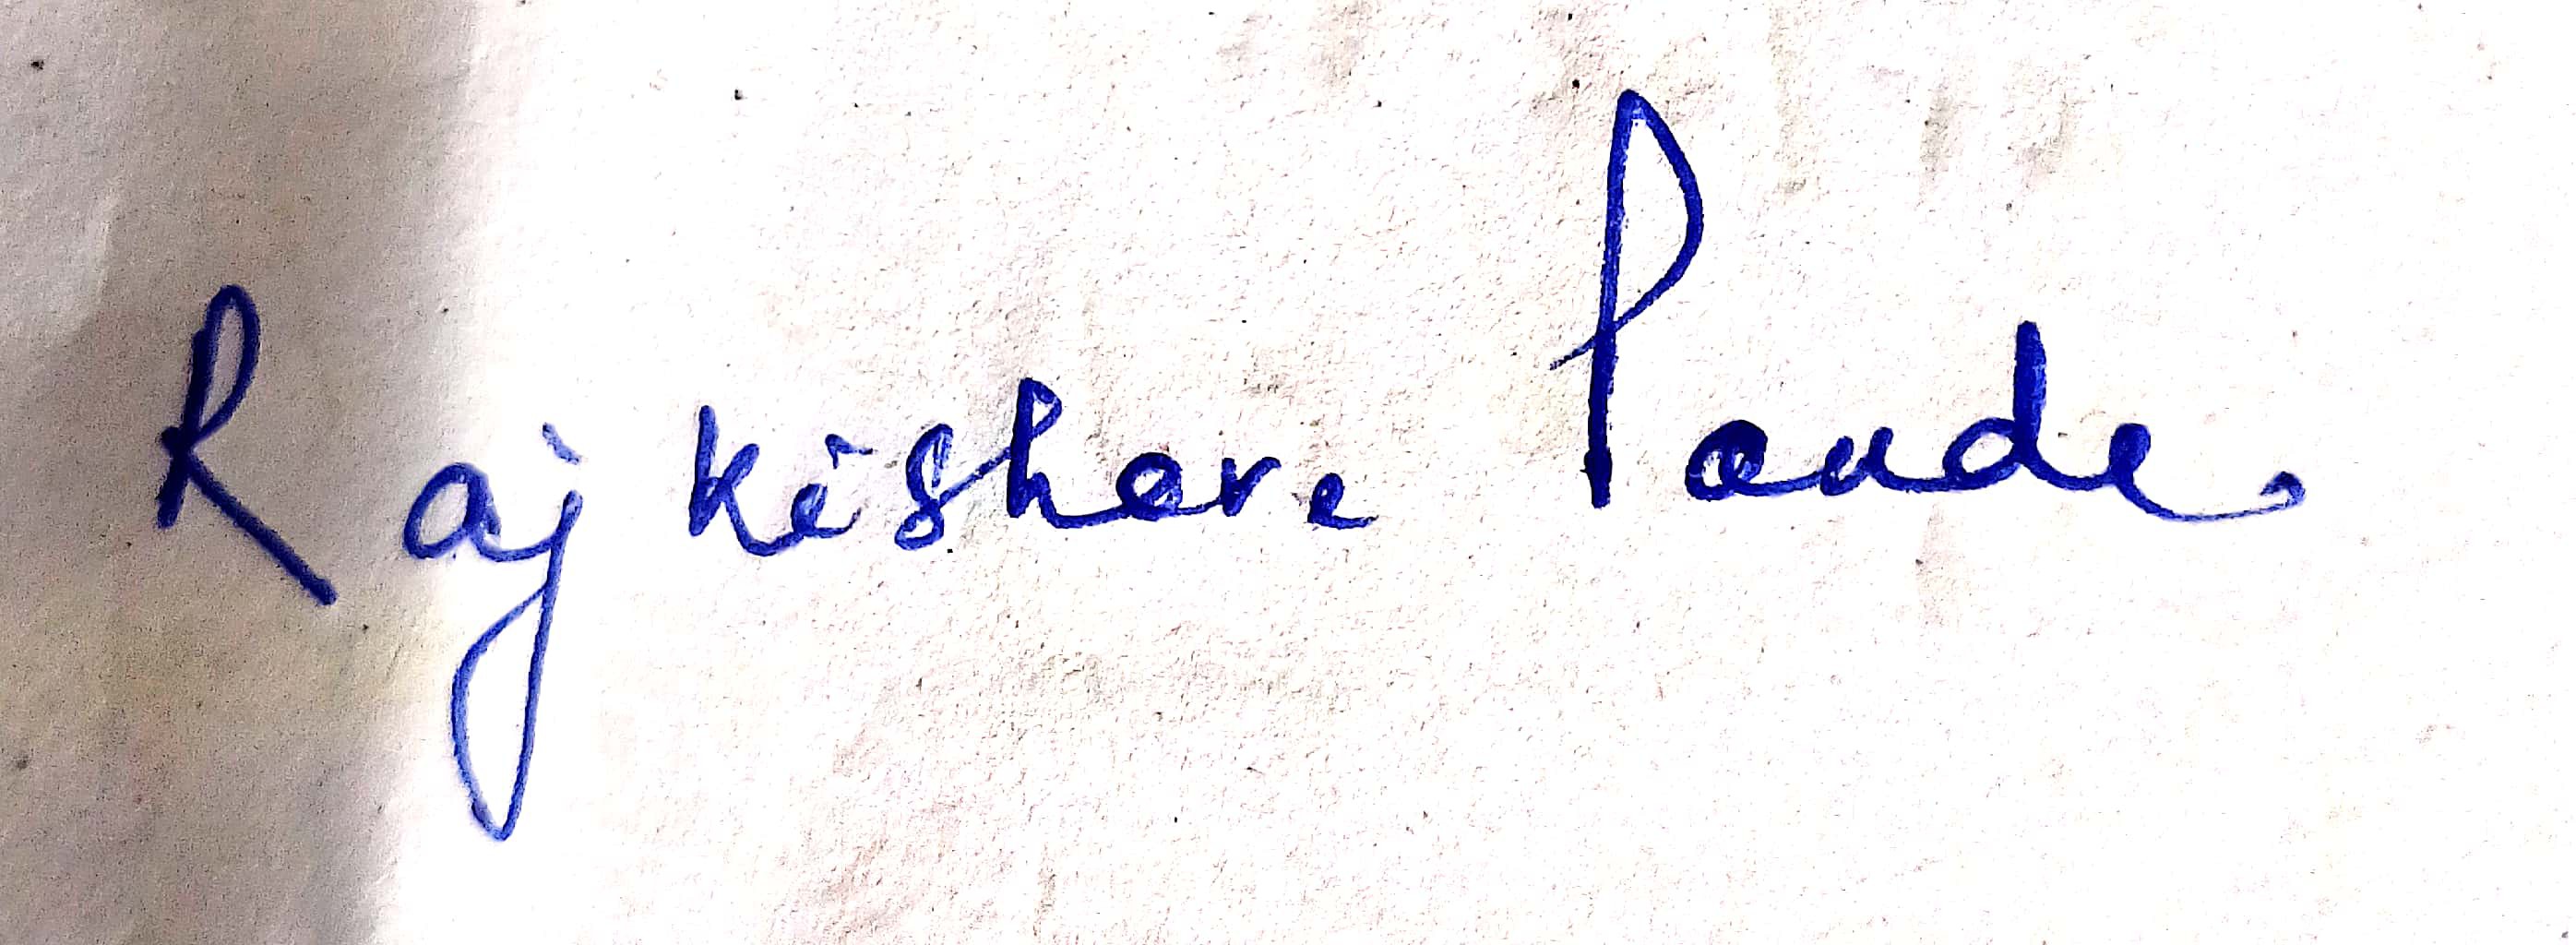 Raj kishore Pande